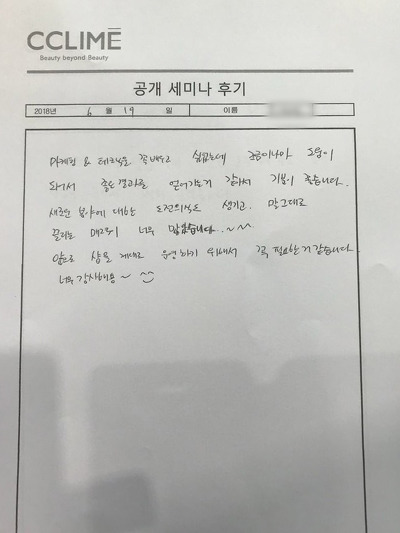 CCLIMĒ
Beauty beyond Beauty
공개 세미나 후기
2018년 6 월 19 일 이름
마케팅 & 테크닉을 꼭 배우고 싶었는데 조금이나마 도움이
되가서 좋은결과를 얻어가는거 같아서 기분이 좋습니다.
새로운 분야에 대한 도전의식도 생기고. 말그대로
끌리는 매력이 너무 많았습니다.~~
앞으로 샵을 제대로 운영하기 위해서 꼭 필요한거 같습니다
너무 감사해용~